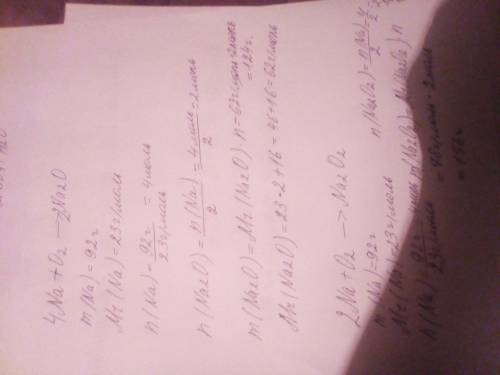 4Na + O2 → 2Na2O
m(Na) = 92г
Mr(Na) = 23г/моль
n(Na) = 92г / 23г/моль = 4моль
n(Na2O) = n(Na) / 2 = 4моль / 2 = 2моль
m(Na2O) = Mr(Na2O) · n = 62г/моль · 2моль = 124г.
Mr(Na2O) = 23·2+16 = 46+16 = 62г/моль
2Na + O2 → Na2O2
m(Na) = 92г n(Na2O2) = n(Na) / 2 = 4 / 2
Mr(Na) = 23г/моль
n(Na) = 92г / 23г/моль m(Na2O2) = Mr(Na2O2) · n
= 78г/моль · 2моль
= 156г